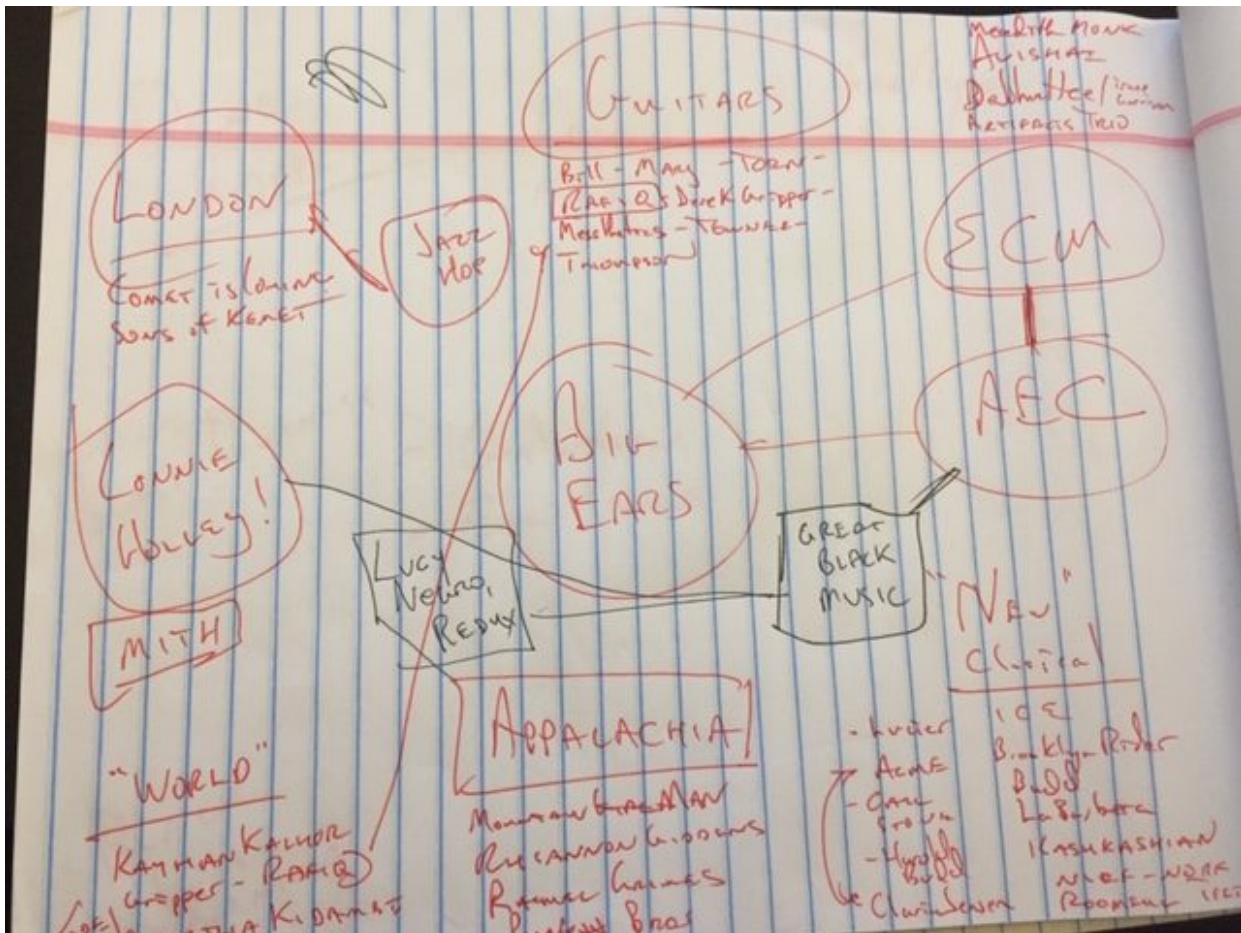 Meredith Monk
Avishai
DeJohnette/
Artifacts Trio
Guitars
Bill - Mary - Torn -
Rafiq, Derek Gripper -
- Towner -
Thompson
London
Comet is Coming
Sons of Kemet
Jazz
Hop
ECM
AEC
Big
Ears
Lonnie
Holley!
MITH
Lucy
Negro,
Redux
Great
Black
Music
"New"
Classical
ICE
Brooklyn Rider
Budd
La Barbara
Kashkashian
Nief-Norf
Roomful
- Lucier
ACME
- Carl
Stone
- Harold
Budd
Clarice Jensen
Appalachia
Mountain Man
Rhiannon Giddens
Rachel Grimes
Bros
"World"
Kayhan Kalhor
Gripper - Rafiq
Kidambi